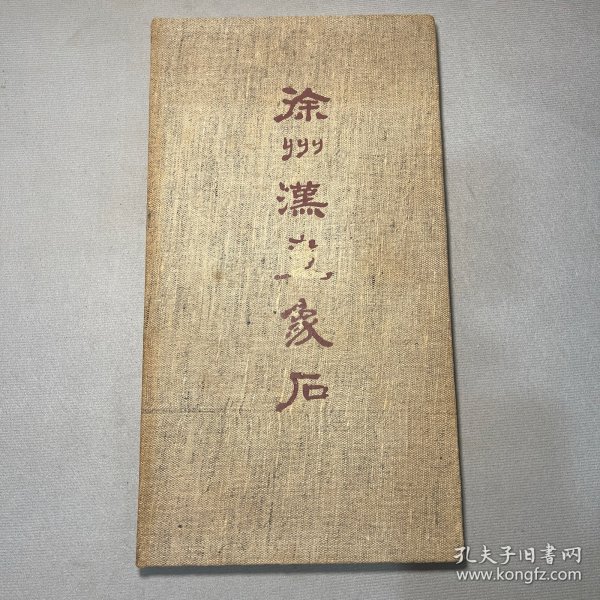 徐州漢
象石
孔夫子旧書网
www.kongfz.com